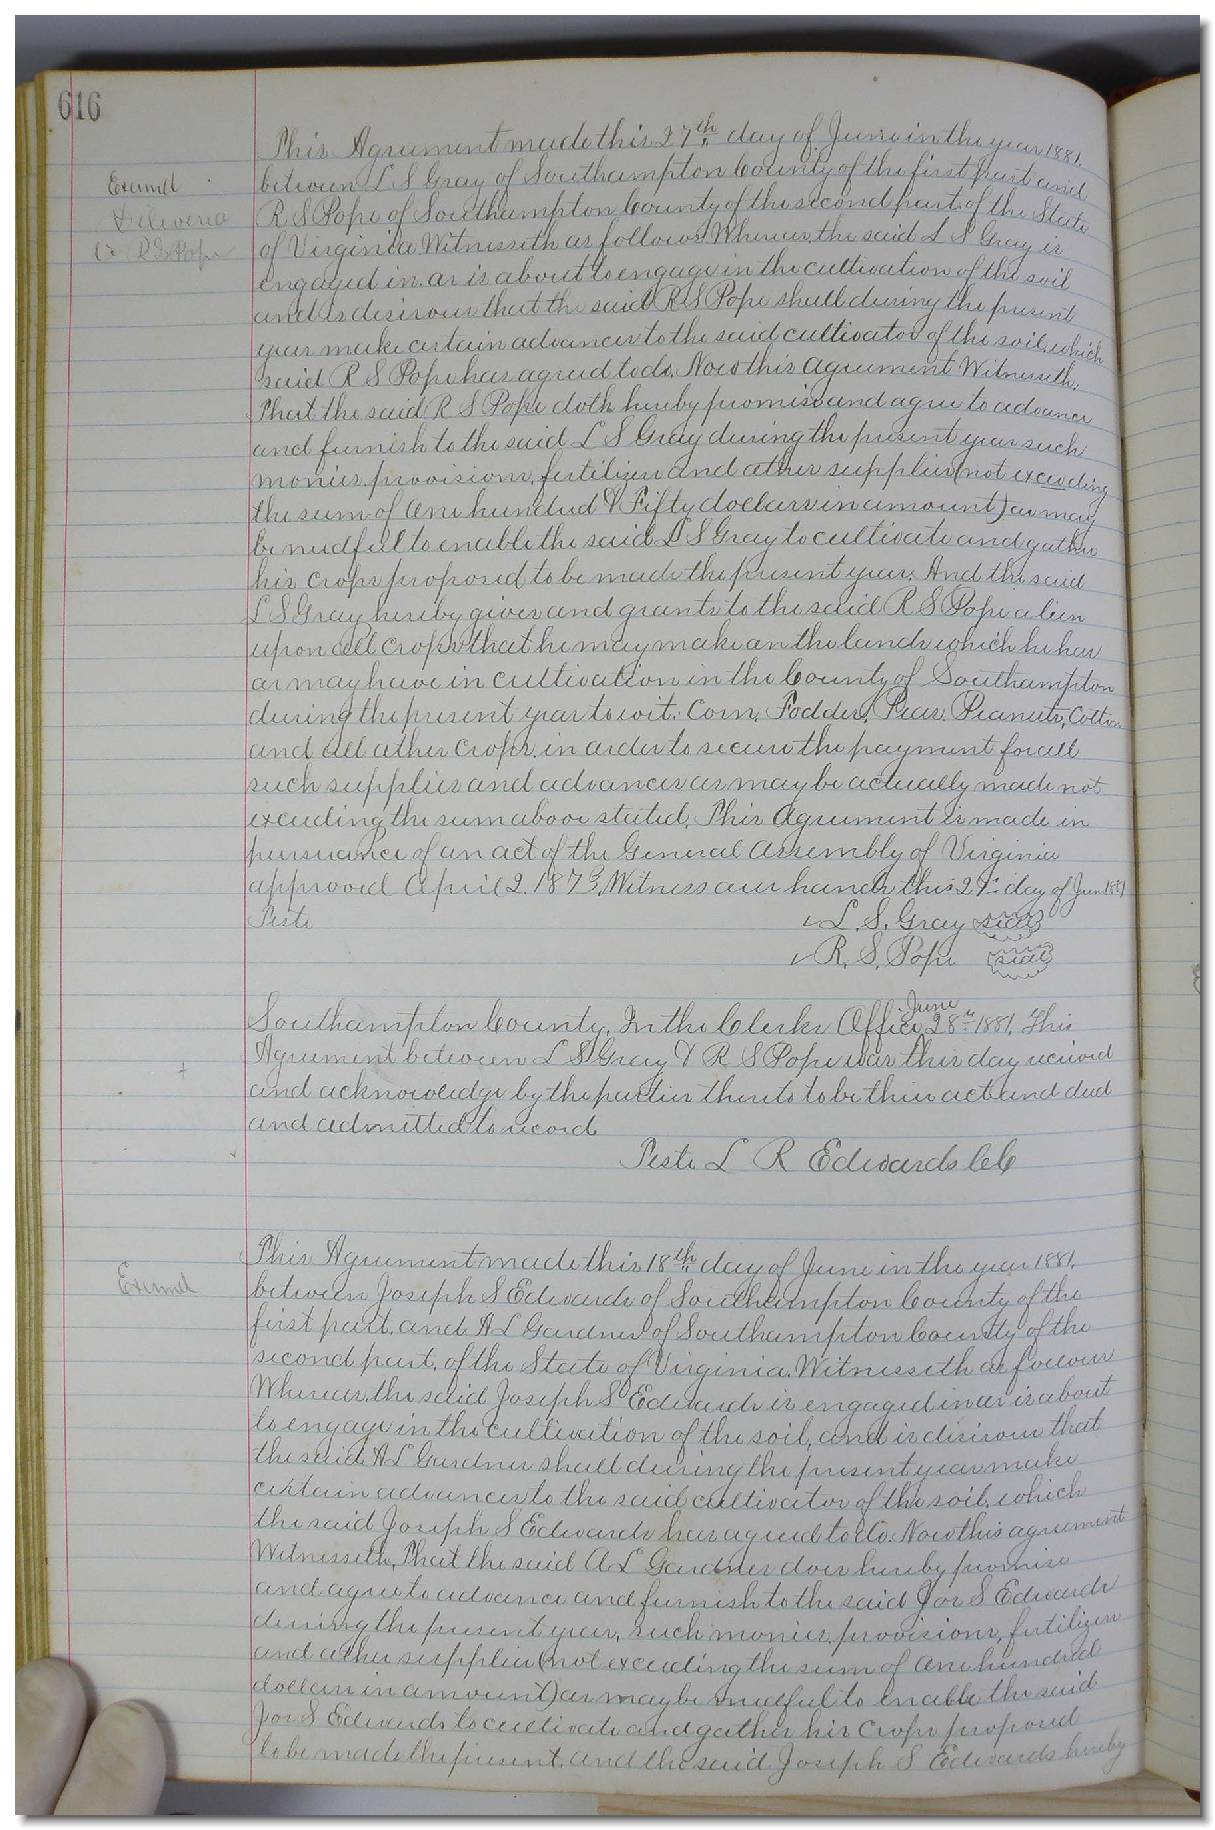 616
This Agreement made this 27th day of June in the year 1881,
between L S Gray of Southampton County of the first part and
R S Pope of Southampton County of the second part, of the State
of Virginia Witnesseth as follows Whereas, the said L S Gray is
engaged in, or is about to engage in the cultivation of the soil
and is desirous that the said R S Pope shall during the present
year make certain advances to the said cultivator of the soil, which
said R S Pope has agreed to do, Now this Agreement Witnesseth:
That the said R S Pope doth hereby promise and agree to advance
and furnish to the said L S Gray during the present year such
monies, provisions, fertilizers and other supplies (not exceeding
the sum of One hundred & Fifty dollars in amount) as may
be needful to enable the said L S Gray to cultivate and gather
his crops proposed to be made the present year. And the said
L S Gray hereby gives and grants to the said R S Pope a lien
upon all crops that he may make on the lands which he has
or may have in cultivation in the County of Southampton
during the present year to wit: Corn, Fodder, Peas, Peanuts, Cotton
and all other crops, in order to secure the payment for all
such supplies and advances as may be actually made not
exceeding the sum above stated, This Agreement is made in
pursuance of an act of the General Assembly of Virginia
approved April 2. 1873, Witness our hands this 27th day of June 1881
Teste L. S. Gray seal
R. S. Pope seal
Examd
Delivered
to R S Pope
Southampton County, In the Clerks Office, June 28th 1881, This
Agreement between L S Gray & R S Pope was this day received
and acknowledge by the parties thereto to be their act and deed
and admitted to record
Teste L R Edwards CC
Examd
This Agreement made this 18th day of June in the year 1881,
between Joseph S Edwards of Southampton County of the
first part, and A L Gardner of Southampton County of the
second part, of the State of Virginia, Witnesseth as follows
Whereas, the said Joseph S Edwards is engaged in or is about
to engage in the cultivation of the soil, and is desirous that
the said A L Gardner shall during the present year make
certain advances to the said cultivator of the soil, which
the said Joseph S Edwards has agreed to do: Now this agreement
Witnesseth, That the said A L Gardner does hereby promise
and agree to advance and furnish to the said Jos S Edwards
during the present year, such monies, provisions, fertilizers
and other supplies (not exceeding the sum of One hundred
dollars in amount) as may be needful to enable the said
Jos S Edwards to cultivate and gather his crops proposed
to be made the present, and the said Joseph S Edwards hereby